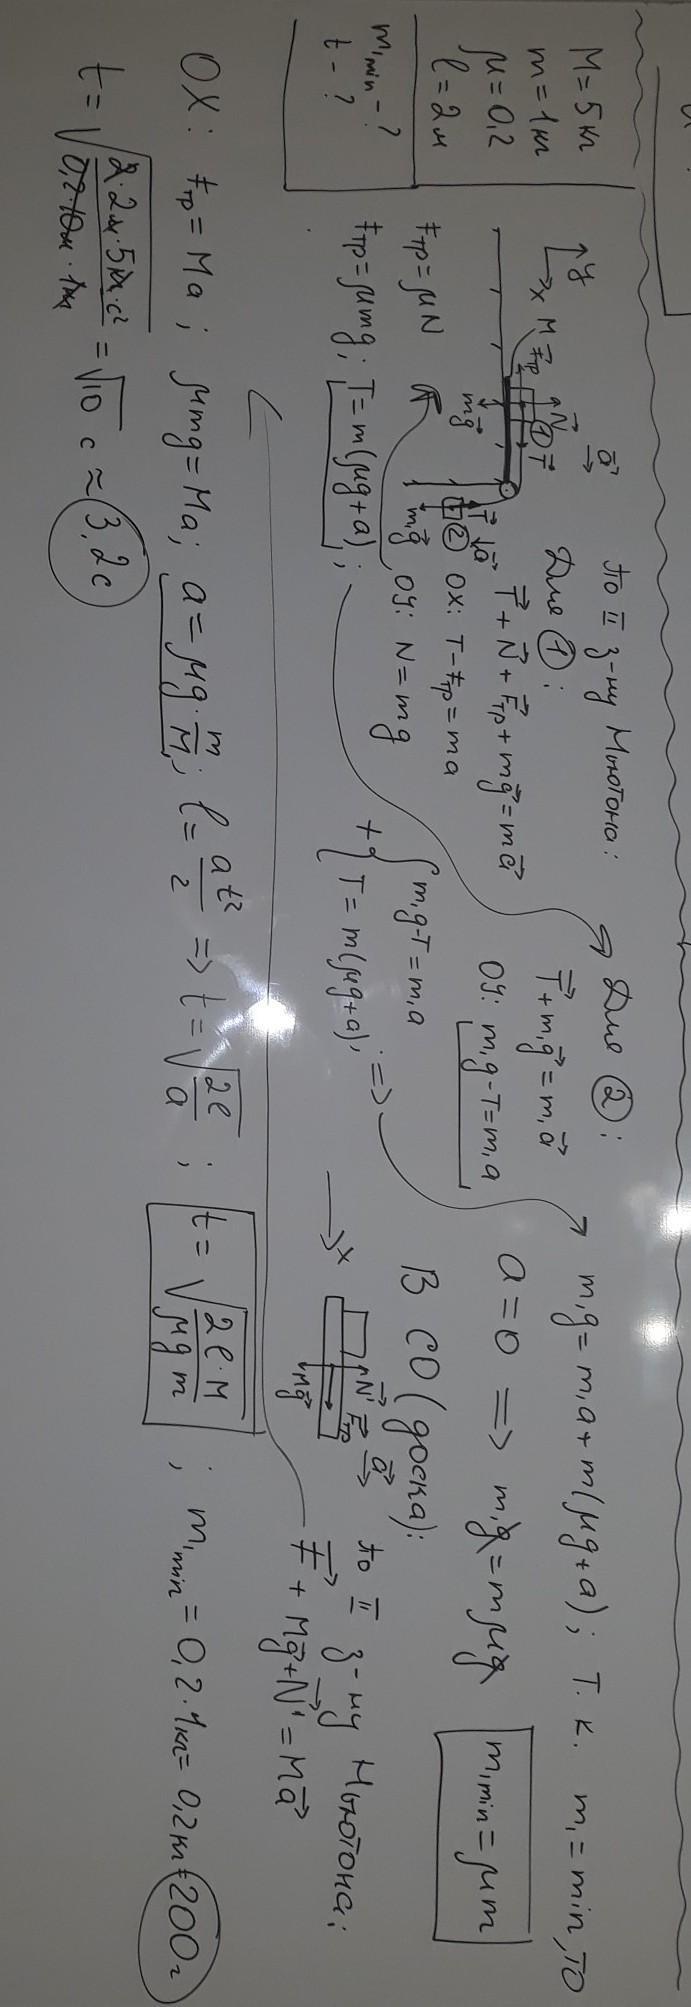 M = 5 кг
m = 1 кг
μ = 0,2
l = 2 м
m₁ min - ?
t - ?
y
x
M
F⃗тр
N⃗
①
T⃗
a⃗
mg⃗
T⃗
a⃗
②
m₁g⃗
по II з-ну Ньютона:
Для ①:
T⃗ + N⃗ + F⃗тр + mg⃗ = ma⃗
OX: T - Fтр = ma
OY: N = mg
Fтр = μN
Fтр = μmg; T = m(μg + a);
Для ②:
T⃗ + m₁g⃗ = m₁a⃗
OY: m₁g - T = m₁a
+ { m₁g - T = m₁a
T = m(μg + a), =>
m₁g = m₁a + m(μg + a); т.к. m₁ = min, то
a = 0 => m₁g = mμg
m₁ min = μm
В СО (доска):
x
N⃗'
F⃗тр
a⃗
Mg⃗
по II з-ну Ньютона:
F⃗ + Mg⃗ + N⃗' = Ma⃗
OX: Fтр = Ma; μmg = Ma; a = μg · m/M; l = at²/2 => t = √(2l/a); t = √(2l·M/μgm); m₁ min = 0,2 · 1 кг = 0,2 кг = 200 г
t = √(2·2м·5кг·с²/0,2·10м·1кг) = √10 с ≈ 3,2 с